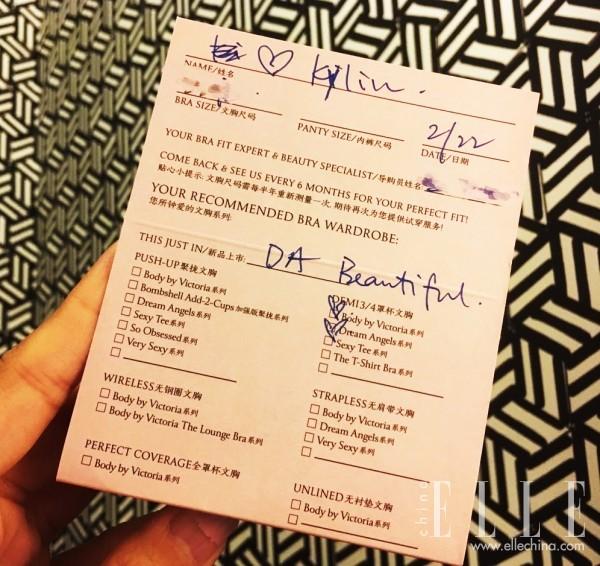 Kylin.
NAME/姓名
2/22
BRA SIZE/文胸尺码
PANTY SIZE/内裤尺码
DATE/日期
YOUR BRA FIT EXPERT & BEAUTY SPECIALIST/导购员姓名
COME BACK & SEE US EVERY 6 MONTHS FOR YOUR PERFECT FIT!
贴心小提示: 文胸尺码需每半年重新测量一次, 期待再次为您提供试穿服务!
YOUR RECOMMENDED BRA WARDROBE:
您所钟爱的文胸系列:
THIS JUST IN/新品上市: DA Beautiful.
PUSH-UP聚拢文胸
Body by Victoria系列
Bombshell Add-2-Cups加强版聚拢系列
Dream Angels系列
Sexy Tee系列
So Obsessed系列
Very Sexy系列
DEMI3/4罩杯文胸
Body by Victoria系列
Dream Angels系列
Sexy Tee系列
The T-Shirt Bra系列
WIRELESS无钢圈文胸
Body by Victoria系列
Body by Victoria The Lounge Bra系列
STRAPLESS无肩带文胸
Body by Victoria系列
Dream Angels系列
Very Sexy系列
PERFECT COVERAGE全罩杯文胸
Body by Victoria系列
UNLINED无衬垫文胸
Body by Victoria系列
china ELLE
www.ellechina.com